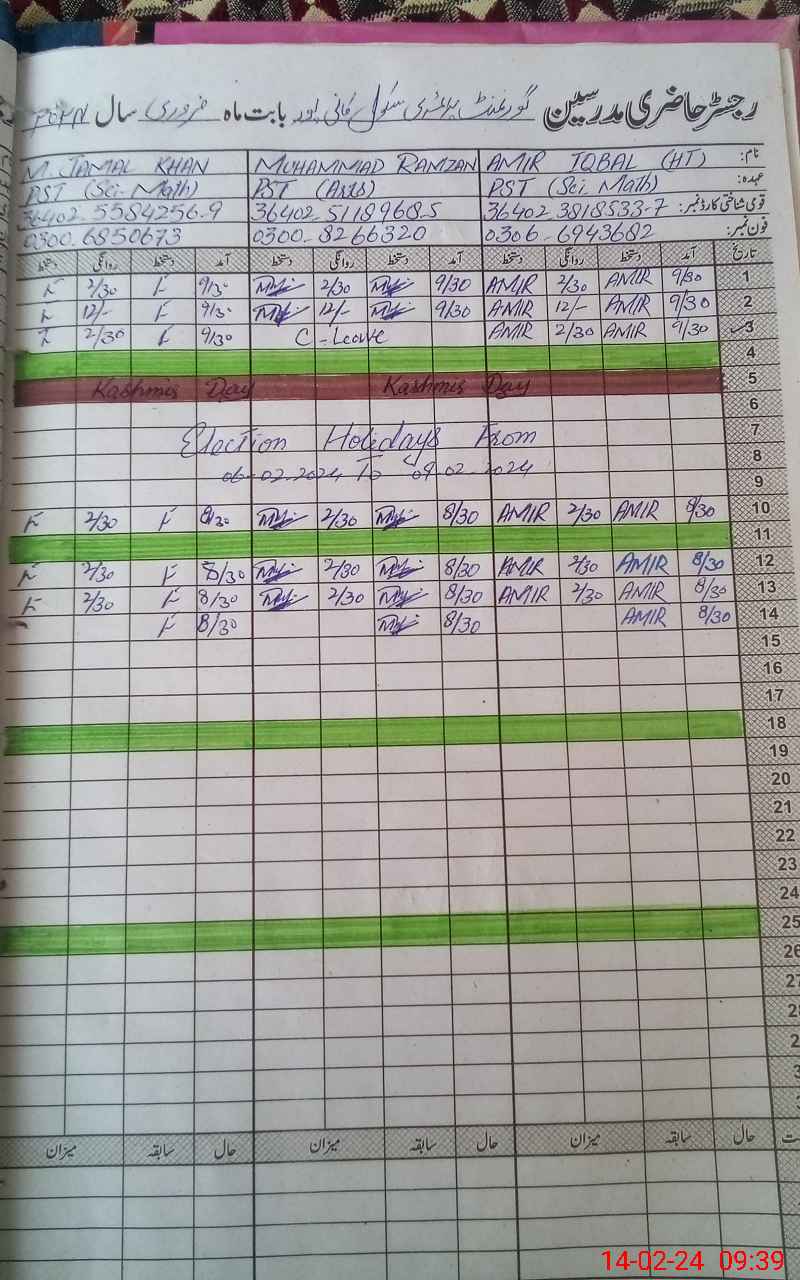 رجسٹر حاضری مدرسین گورنمنٹ پرائمری سکول بابت ماہ فروری سال ۲۰۲۴
نام: AMIR IQBAL (HT) MUHAMMAD RAMZAN M. JAMAL KHAN
عہدہ: PST (Sci. Math) PST (Arts) PST (Sci-Math)
قومی شناختی کارڈ نمبر: 36402.3818533-7 36402-5118968-5 36402-5584256-9
فون نمبر: 0306-6943682 0300-8266320 0300-6850673
تاریخ آمد دستخط روانگی دستخط آمد دستخط روانگی دستخط آمد دستخط روانگی دستخط
1 9/30 AMIR 2/30 AMIR 9/30 2/30 9/30 2/30
2 9/30 AMIR 12/- AMIR 9/30 12/- 9/30 12/-
3 9/30 AMIR 2/30 AMIR C-Leave 9/30 2/30
4
5 Kashmir Day Kashmir Day
6
7 Election Holidays From
8 06-02-2024 To 09-02-2024
9
10 8/30 AMIR 2/30 AMIR 8/30 2/30 8/30 2/30
11
12 8/30 AMIR 2/30 AMIR 8/30 2/30 8/30 2/30
13 8/30 AMIR 2/30 AMIR 8/30 2/30 8/30 2/30
14 8/30 AMIR 8/30 8/30
15
16
17
18
19
20
21
22
23
24
25
26
حال سابقہ میزان حال سابقہ میزان حال سابقہ میزان
14-02-24 09:39